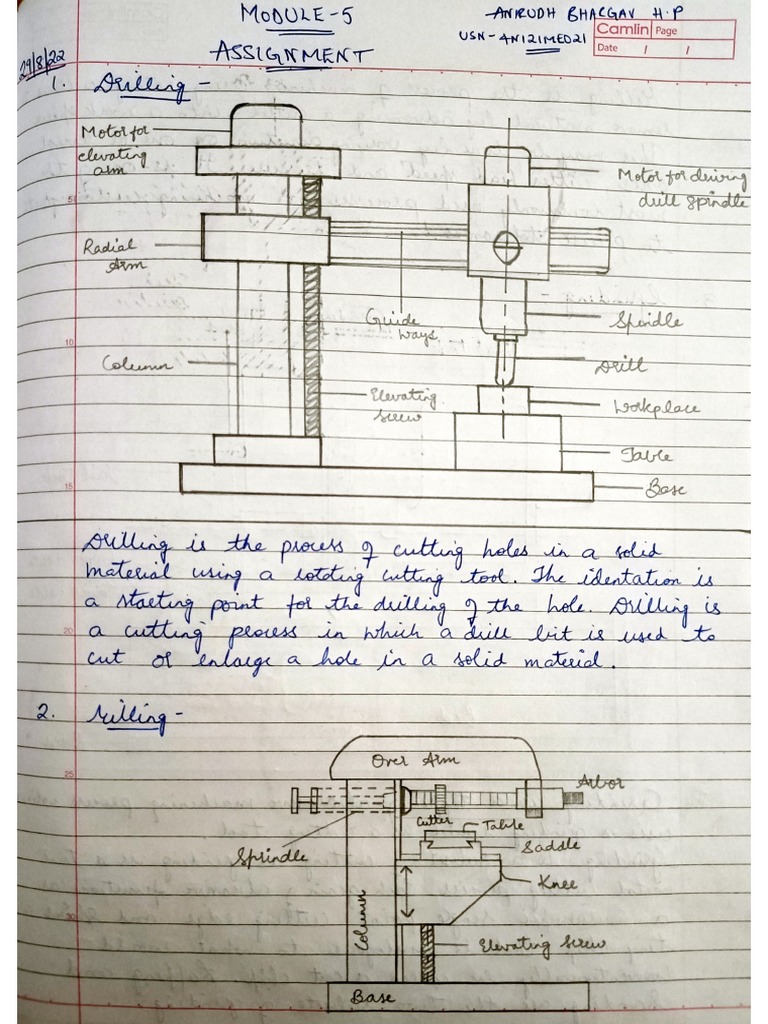 MODULE-5
ANIRUDH BHARGAV H.P
USN-4NI21ME021
Camlin Page
Date / /
ASSIGNMENT
29/8/22
1. Drilling -
Motor for
elevating
arm
Motor for driving
drill spindle
5
Radial
Arm
Guide
ways
Spindle
10
Column
Drill
Elevating
screw
Workplace
Table
15
Base
Drilling is the process of cutting holes in a solid
material using a rotating cutting tool. The identation is
a starting point for the drilling of the hole. Drilling is
20
a cutting process in which a drill bit is used to
cut or enlarge a hole in a solid material.
2. Milling -
Over Arm
25
Arbor
Cutter
Table
Sprindle
Saddle
Knee
Column
30
Elevating Screw
Base